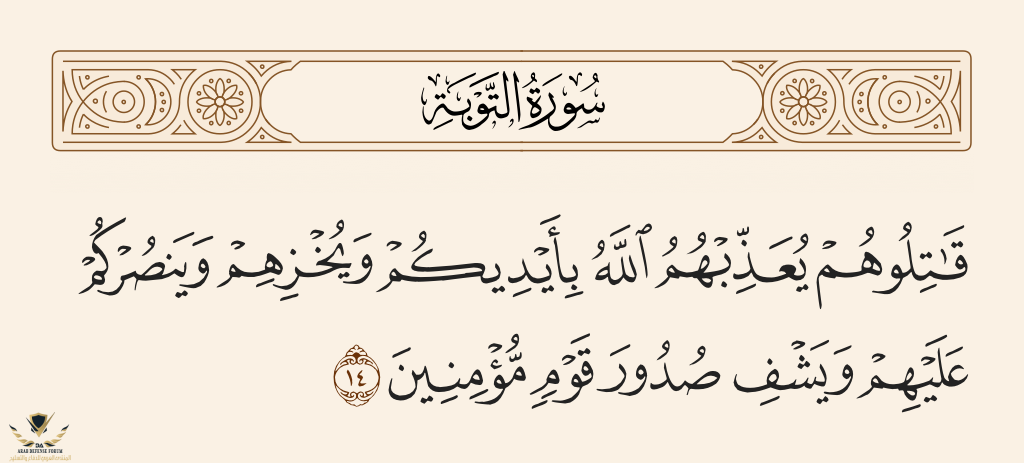 سُورَةُ التَّوْبَةِ
قَٰتِلُوهُمْ يُعَذِّبْهُمُ ٱللَّهُ بِأَيْدِيكُمْ وَيُخْزِهِمْ وَيَنصُرْكُمْ
عَلَيْهِمْ وَيَشْفِ صُدُورَ قَوْمٍ مُّؤْمِنِينَ ١٤
DA
ARAB DEFENSE FORUM